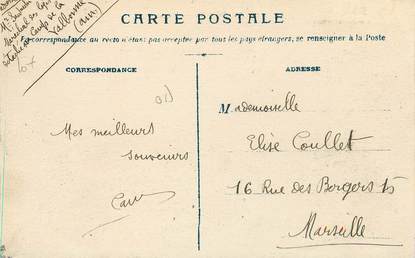 Camp de la
Valbonne
(Ain)
CARTE POSTALE
La correspondance au recto n'étant pas acceptée par tous les pays étrangers, se renseigner à la Poste
CORRESPONDANCE
ADRESSE
Mes meilleurs
souvenirs
Mademoiselle
Elise Coullet
16 Rue des Bergers 15
Marseille